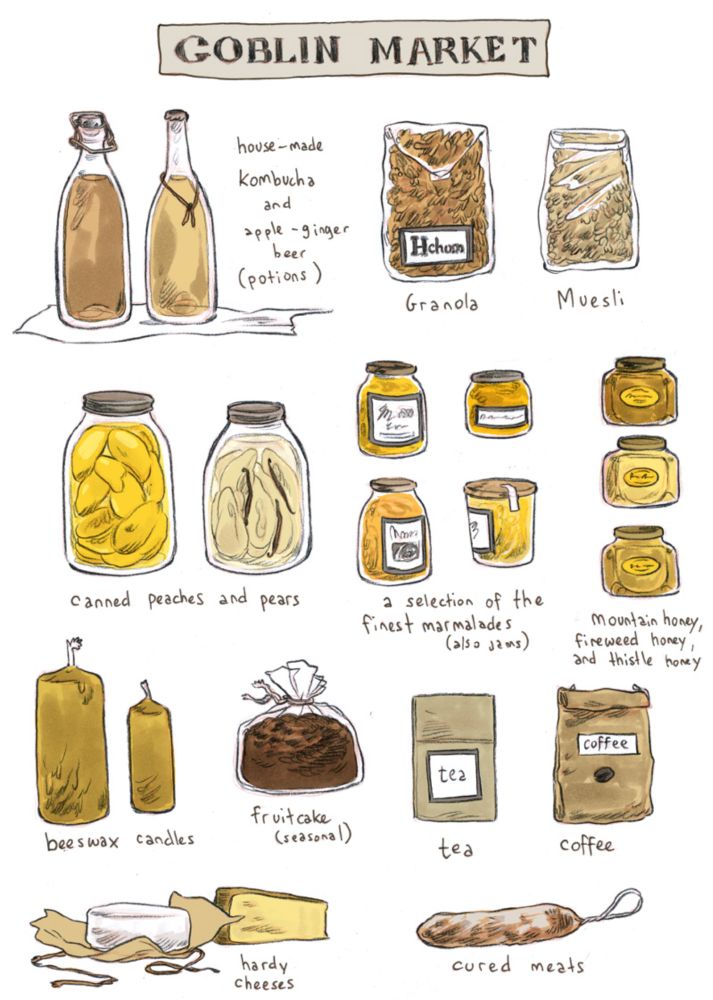 GOBLIN MARKET
house-made
Kombucha
and
apple-ginger
beer
(potions)
Granola
Muesli
canned peaches and pears
a selection of the
finest marmalades
(also jams)
Mountain honey,
fireweed honey,
and thistle honey
beeswax candles
fruitcake
(seasonal)
tea
tea
coffee
coffee
hardy
cheeses
cured meats